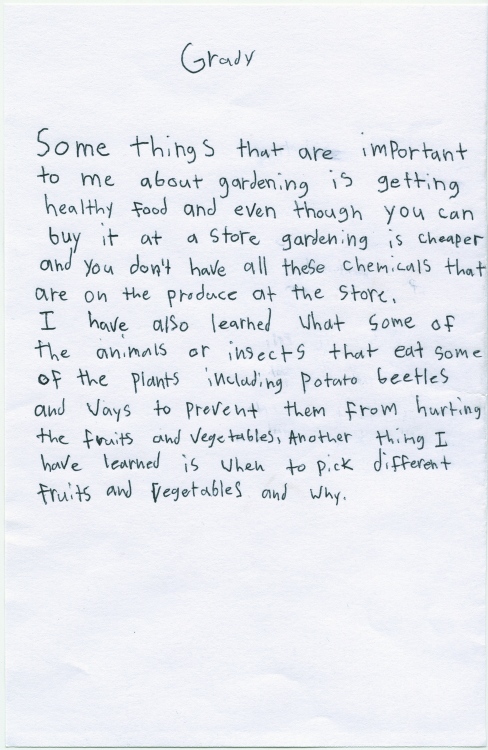 Grady
Some things that are important
to me about gardening is getting
healthy food and even though you can
buy it at a store gardening is cheaper
and you don't have all these chemicals that
are on the produce at the store.
I have also learned what some of
the animals or insects that eat some
of the plants including potato beetles
and ways to prevent them from hurting
the fruits and vegetables, Another thing I
have learned is when to pick different
fruits and vegetables and why.